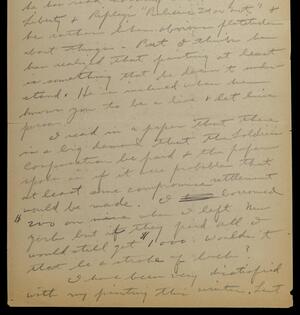 Liberty & Ripley's "Believe It or Not" &
be rather than obvious platitudes
about things - But I think he
has realized that painting at least
is something that he doesn't under-
stand. He is inclined when he
known you to be a live & let live
person.
I read in a paper that there
is a big demand that the Soldiers
Compensation be paid & the paper
spoke as if it were probable that
at least some compromise settlement
would be made. I borrowed
$200 on mine when I left New
York but if they paid all I
would still get $1000. Wouldn't
that be a stroke of luck?
I have been very disatisfied
with my painting this winter. Last